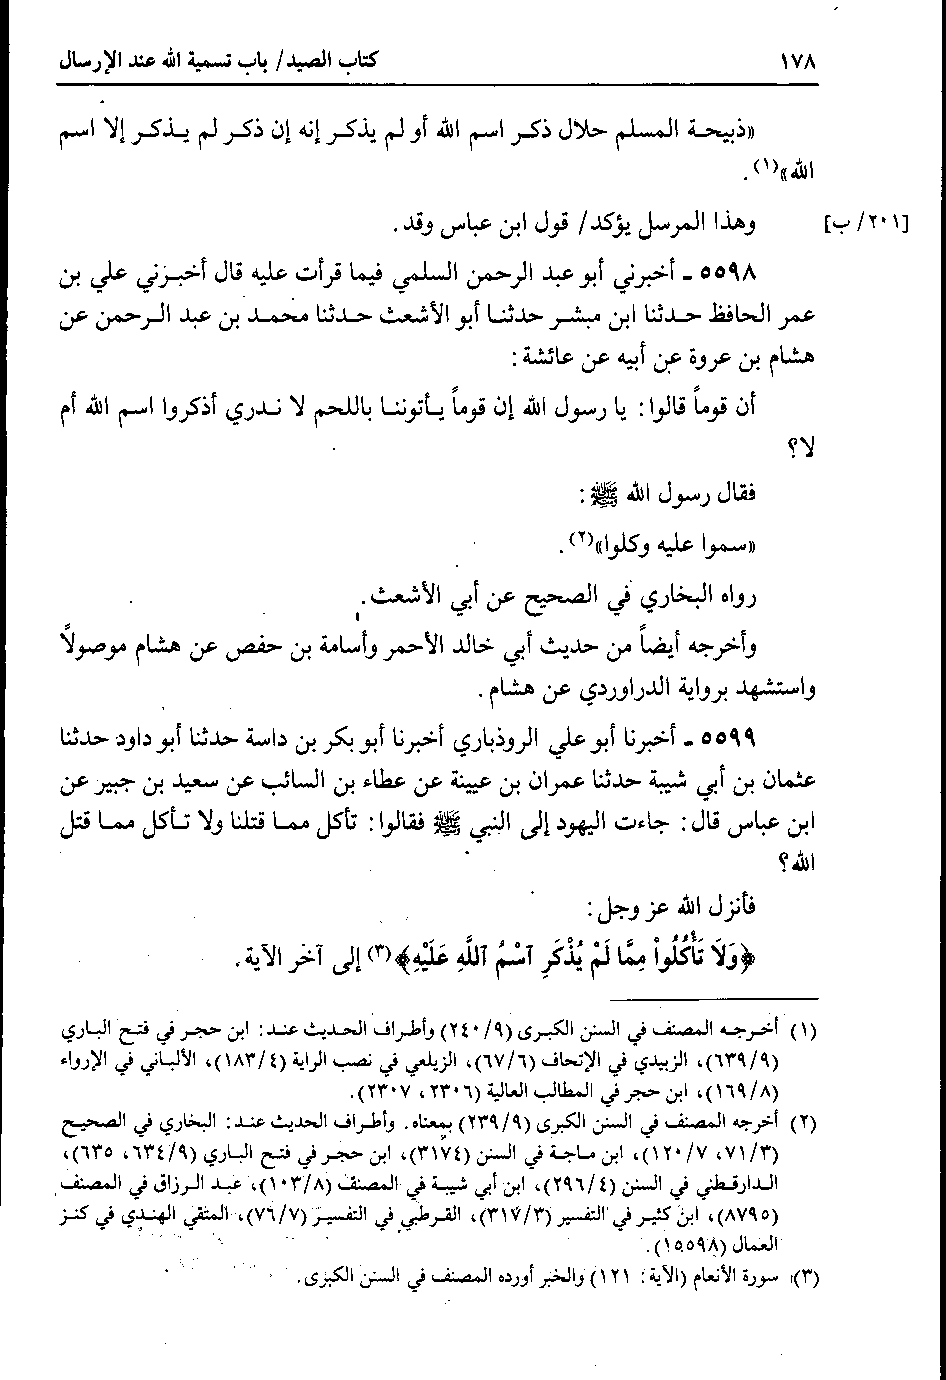 ١٧٨ كتاب الصيد/ باب تسمية الله عند الإرسال
«ذبيحة المسلم حلال ذكر اسم الله أو لم يذكر إنه إن ذكر لم يذكر إلا اسم
الله»(١).
[٢٠١/ ب] وهذا المرسل يؤكد/ قول ابن عباس وقد.
٥٥٩٨ ـ أخبرني أبو عبد الرحمن السلمي فيما قرأت عليه قال أخبرني علي بن
عمر الحافظ حدثنا ابن مبشر حدثنا أبو الأشعث حدثنا محمد بن عبد الرحمن عن
هشام بن عروة عن أبيه عن عائشة:
أن قوماً قالوا: يا رسول الله إن قوماً يأتوننا باللحم لا ندري أذكروا اسم الله أم
لا؟
فقال رسول الله ﷺ:
«سموا عليه وكلوا»(٢).
رواه البخاري في الصحيح عن أبي الأشعث.
وأخرجه أيضاً من حديث أبي خالد الأحمر وأسامة بن حفص عن هشام موصولاً
واستشهد برواية الدراوردي عن هشام.
٥٥٩٩ ـ أخبرنا أبو علي الروذباري أخبرنا أبو بكر بن داسة حدثنا أبو داود حدثنا
عثمان بن أبي شيبة حدثنا عمران بن عيينة عن عطاء بن السائب عن سعيد بن جبير عن
ابن عباس قال: جاءت اليهود إلى النبي ﷺ فقالوا: تأكل مما قتلنا ولا تأكل مما قتل
الله؟
فأنزل الله عز وجل:
﴿وَلَا تَأْكُلُواْ مِمَّا لَمْ يُذْكَرِ ٱسْمُ ٱللَّهِ عَلَيْهِ﴾(٣) إلى آخر الآية.
(١) أخرجه المصنف في السنن الكبرى (٢٤٠/٩) وأطراف الحديث عند: ابن حجر في فتح الباري
(٦٣٩/٩)، الزبيدي في الإتحاف (٦٧/٦)، الزيلعي في نصب الراية (١٨٣/٤)، الألباني في الإرواء
(١٦٩/٨)، ابن حجر في المطالب العالية (٢٣٠٦، ٢٣٠٧).
(٢) أخرجه المصنف في السنن الكبرى (٢٣٩/٩) بمعناه. وأطراف الحديث عند: البخاري في الصحيح
(٧١/٣، ١٢٠/٧)، ابن ماجة في السنن (٣١٧٤)، ابن حجر في فتح الباري (٦٣٤/٩، ٦٣٥)،
الدارقطني في السنن (٢٩٦/٤)، ابن أبي شيبة في المصنف (١٠٣/٨)، عبد الرزاق في المصنف
(٨٧٩٥)، ابن كثير في التفسير (٣١٧/٣)، القرطبي في التفسير (٧٦/٧)، المتقي الهندي في كنز
العمال (١٥٥٩٨).
(٣) سورة الأنعام (الآية: ١٢١) والخبر أورده المصنف في السنن الكبرى.